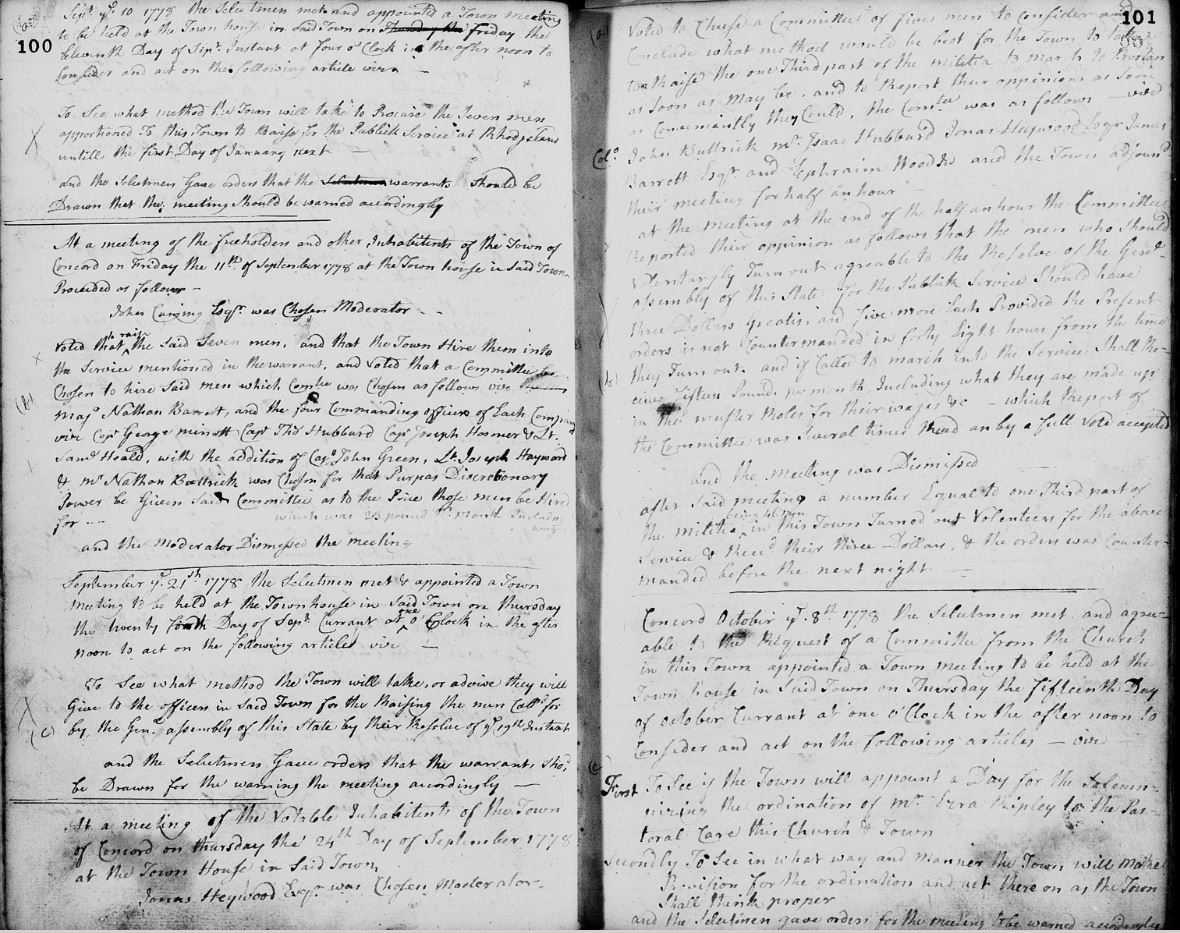 100
Sept. ye. 10 1778 the Selectmen met and appointed a Town meeting
to be held at the Town house in said Town on Friday the
Eleventh Day of Sept. Instant at four o'Clock in the after noon to
Consider and act on the following article viz. —
To See what method the Town will take to Procure the Seven men
apportioned to this Town to Raise for the Publick Service at Rhodisland
untill the first Day of January next —
and the Selectmen Gave orders that the warrants Should be
Drawn that the meeting Should be warned accordingly
At a meeting of the freeholders and other Inhabitents of the Town of
Concord on Friday the 11th of September 1778 at the Town house in Said Town
Proceeded as follows —
John Cuming Esqr. was Chosen Moderator —
to raise
Voted that the Said Seven men, and that the Town Hire them into
the Service mentioned in the warrant, and Voted that a Committee be
Chosen to hire Said men which Comtee was Chosen as follows viz
(a)
Majr. Nathan Barret, and the four Commanding officers of Each Company
viz Capt George minott Capt Thos Hubbard Capt Joseph Hosmer & Lt.
Saml Heald, with the addition of Capt John Green, Lt Joseph Hayward
& mr Nathan Buttrick was Chosen for that Purpas Discretionary
Power be Given Said Committee as to the Price those men be Hired
for —
which was 23 pound pr. Month Includng
wages
and the Moderator Dismessed the meeting
September ye. 21st 1778 the Selectmen met & appointed a Town
meeting to be held at the Town house in Said Town on Thursday
one
the twenty forth Day of Sept. Currant at o'Clock in the after
noon to act on the following articles viz. —
To See what method the Town will take, or advise they will
Give to the officers in Said Town for the Raising the men Calld for
(c)
by the Genl. assembly of this State by their Resolve of ye 19th Instant
and the Selectmen Gave orders that the warrants Shod
be Drawn for the warning the meeting accordingly —
At a meeting of the Votable Inhabitents of the Town
of Concord on thursday the 24th Day of September 1778
at the Town House in Said Town
Jonas Heywood Esqr. was Chosen Moderator
101
(a)
Voted to Chuse a Committee of five men to Consider and
Conclude what method would be best for the Town to take
to Raise the one Third part of the militia to march to Boston
as soon as may be. and to Report their oppinions as Soon
as Conveniantly they Could, the Comtee was as follows — viz
Colo. John Buttrick mr. Isaac Hubbard Jonas Heywood Esqr James
Barrett Esqr and Ephraim Wood Jr and the Town adjournd
their meeting for half an hour —
at the meeting at the end of the half an hour the Committee
Reported their oppinion as follows that the men who Should
Volentaryly Turn out agreable to the Resolve of the Genl
assembly of this State for the Publick Service Should have
three Dollars Gratis and five more Each Provided the Present
orders is not Countermanded in forty Eight hours from the time
(b)
they Turn out. and if Called to march into the Service Shall Re-
ceive fifteen Pounds pr month Including what they are made up
in the muster Roles for their wages &c — which Report of
the Committee was Several times Read an by a full Vote accepted
and the Meeting was Dismissed
after Said meeting a number Equal to one Third part of
being 46 men
the militia in this Town Turned out Volenteers for the above
Service & Recd their three Dollars, & the orders was Counter-
manded before the next night —
Concord October ye. 8th 1778 the Selectmen met and agree-
able to the Request of a Committee from the Church
in this Town appointed a Town meeting to be held at the
Town house in Said Town on Thursday the fifteenth Day
of october Currant at one o'Clock in the after noon to
Consider and act on the following articles — viz
(c)
First To See if the Town will appoint a Day for the Solemn-
nizing the ordination of mr. Ezra Ripley to the Pas-
toral Care this Church & Town
Secondly To See in what way and manner the Town will make
Provision for the ordination and act there on as the Town
Shall think proper
and the Selectmen gave orders for the meeting to be warned acordingly